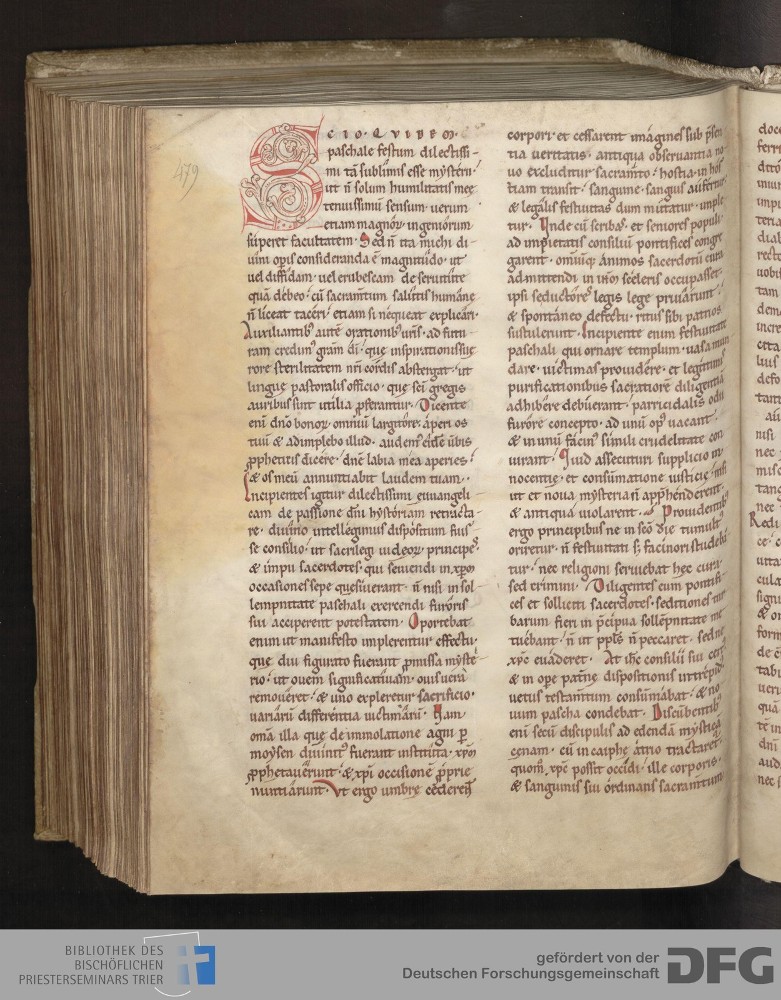 479
SCIO QVIDEM
paschale festum dilectissi-
mi tā sublimis esse mysterii
ut n̄ solum humilitatis meę
tenuissimū sensum uerum
etiam magnoꝝ ingeniorum
superet facultatem. Sed n̄ ita michi di-
uini opis consideranda ē magnitudo. ut
uel diffidam. uel erubescam de seruitute
quā debeo. cū sacram̄tum salutis humanę
n̄ liceat taceri. etiam si nequeat explicari.
Auxiliantibꝰ autē orationibꝰ uīis. ad futu-
ram credimꝰ grām dī. que inspirationis suę
rore sterilitatem nrī cordis abstergat. ut
linguę pastoralis officio. que sēi gregis
auribus sint utilia p̄ferantur. Dicente
enī dnō bonoꝝ omniū largitore. aperi os
tuū & adimplebo illud. audemꝰ eidē ūbis
ꝓphetitis dicere. dnē labia mea aperies.
& os meū annuntiabit laudem tuam.
Incipientes igitur dilectissimi euuangeli
cam de passione dnī hystoriam retracta-
re. diuino intellegimus dispositum fuis-
se consilio. ut sacrilegi iudeoꝝ principeˢ
& impii sacerdotes. qui seuiendi in xp̄m
occasiones sepe quesiuerant. n̄ nisi in sol
lempnitate paschali exercendi furoris
sui acciperent potestatem. Oportebat
enim ut manifesto implerentur effectu.
que diu figurato fuerant ꝓmissa myste
rio. ut ouem significatiuam. ouis uera
remoueret. & uno expleretur sacrificio.
uariarū differentia uictimarū. Nam
omā illa que de immolatione agni ꝑ
moysen diuinitꝰ fuerant instituta. xp̄m
ꝓphetauerunt. & xp̄i occisionē ꝓprie
nuntiarunt. Vt ergo umbrę cederent
corpori. et cessarent imagines sub p̄sen
tia ueritatis. antiqua obseruantia no
uo excluditur sacram̄to. hostia in hos
tiam transit. sanguine sanguis aufertur
& legalis festiuitas dum mutatur. imple
tur. Unde cū scribas. et seniores populi.
ad impietatis consiliū pontifices congre
garent. omiūq; animos sacerdotū cura
admittendi in ihm̄ sceleris occupasset.
ipsi seductoreˢ legis lege priuarunt.
& spontaneo defectu. ritus sibi patrios
sustulerunt. Incipiente enim festiuitate
paschali qui ornare templum. uasa mun
dare. uictimas prouidere. et legitimis
purificationibus sacratiorē diligentiā
adhibere debuerant. parricidalis odii
furore concepto. ad unū opꝰ uacant.
& in unū facinꝰ simili crudelitate con
iurant. Quid assecuturi supplicio in
nocentię. et consūmatione iusticię. nisi
ut et noua mysteria n̄ app̄henderent.
& antiqua uiolarent. Prouidentibꝰ
ergo principibus ne in scō die tumultꝰ
oriretur. n̄ festiuitati sȝ facinori studeba
tur. nec religioni seruiebat hęc cura
sed crimini. Diligentes eum pontifi
ces et solliciti sacerdotes. seditiones tur
barum fieri in p̄cipua sollēpnitate me
tuebant. n̄ ut pplꝰ n̄ peccaret. sed ne
xp̄c euaderet. At ihc̄ consilii sui certꝰ
& in ope patnę dispositionis intrepidꝰ
uetus testam̄tum consūmabat. & no
uum pascha condebat. Discūbentibꝰ
enī secū discipulis ad edendā mysticā
cęnam. cū in caiphę atrio tractaretᷣ
quom̄. xp̄c possit occidi. ille corporis.
& sanguinis sui ordinans sacramtum
BIBLIOTHEK DES
BISCHÖFLICHEN
PRIESTERSEMINARS TRIER
gefördert von der
Deutschen Forschungsgemeinschaft
DFG